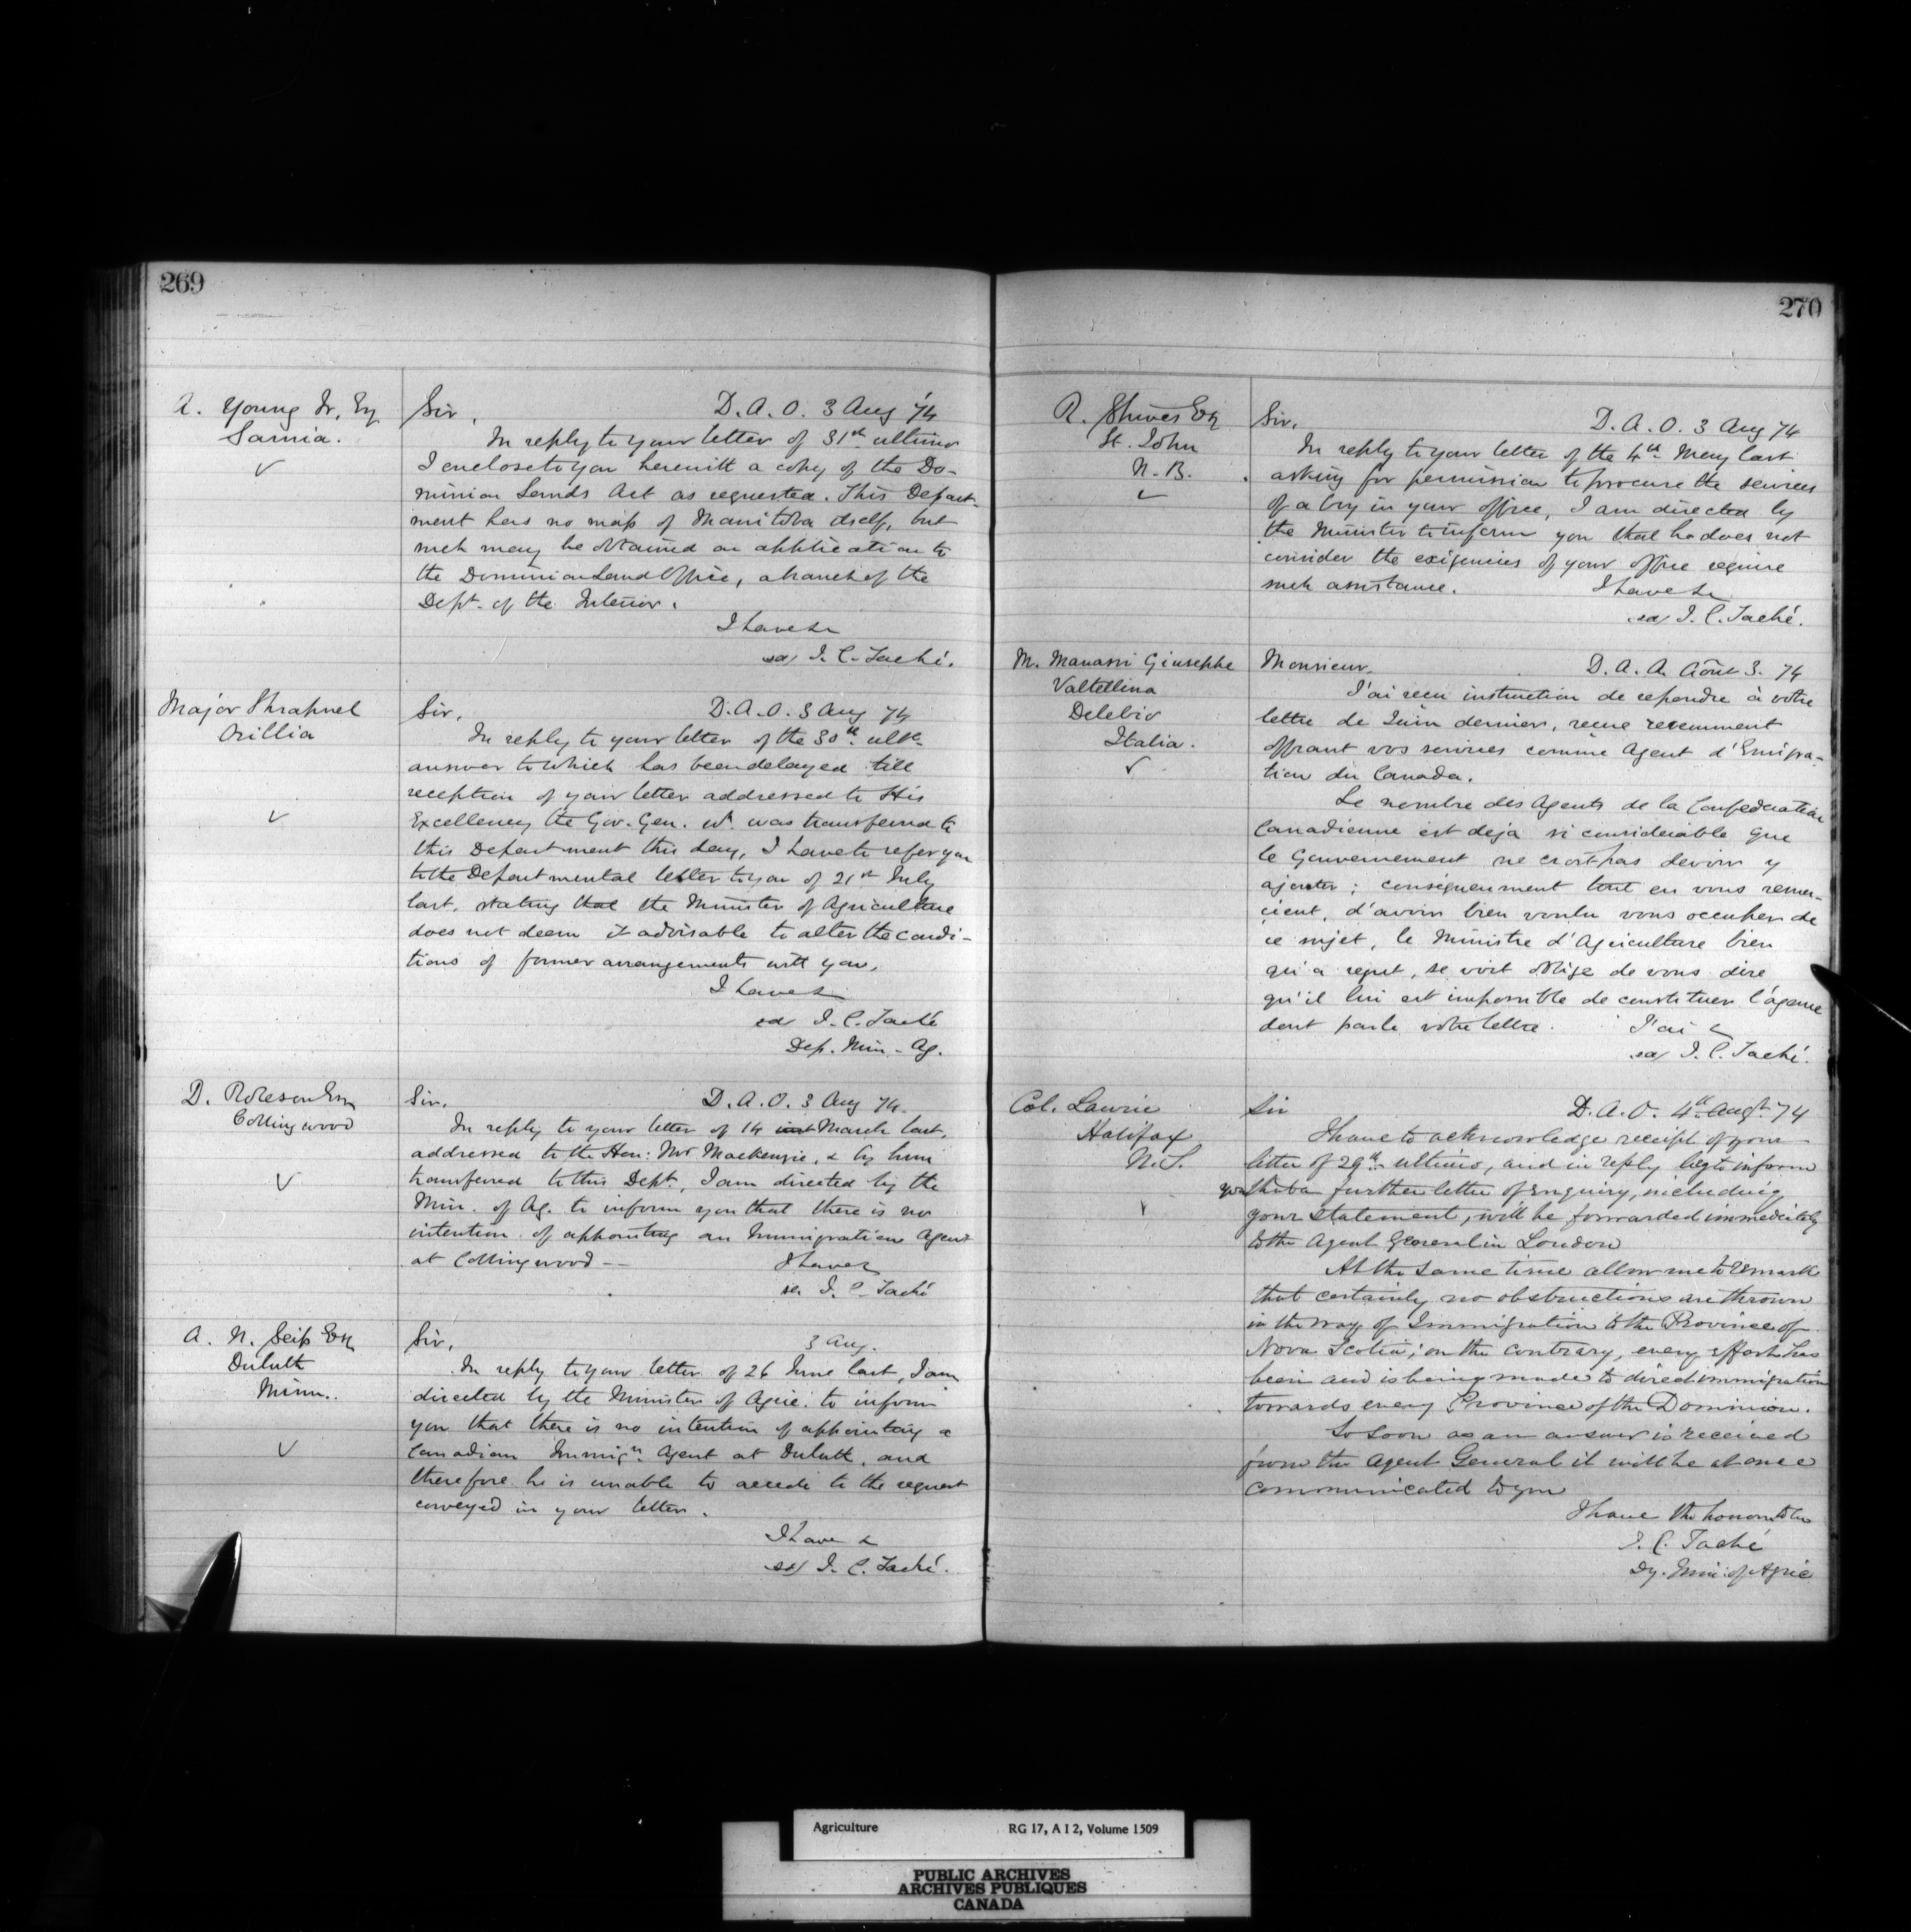 269
A. Young Jr. Esq
Sarnia.
Sir,
D. A. O. 3 Aug '74
In reply to your letter of 31st ultimo
I enclose to you herewith a copy of the Do-
minion Lands Act as requested. This Depart-
ment has no map of Manitoba itself, but
such may be obtained on application to
the Dominion Land Office, a branch of the
Dept. of the Interior.
I have &c
sd/ J. C. Taché.
Major Shrapnel
Orillia
Sir,
D. A. O. 3 Aug 74
In reply to your letter of the 30th ulto.
answer to which has been delayed till
reception of your letter addressed to His
Excellency the Gov. Gen. wh. was transferred to
this Department this day, I have to refer you
to the Departmental letter to you of 21st July
last, stating that the Minister of Agriculture
does not deem it advisable to alter the condi-
tions of former arrangements with you.
I have &
sd/ J. C. Taché
Dep. Min. Ag.
D. Roberson Esq
Collingwood
Sir,
D. A. O. 3 Aug 74.
In reply to your letter of 14 inst March last,
addressed to the Hon: Mr Mackenzie, & by him
transferred to this Dept., I am directed by the
Min. of Ag. to inform you that there is no
intention of appointing an Immigration Agent
at Collingwood --
I have &
sd. J. C. Taché
A. N. Seip Esq
Duluth
Minn..
Sir,
3 Aug.
In reply to your letter of 26 June last, I am
directed by the Minister of Agric. to inform
you that there is no intention of appointing a
Canadian Immign. Agent at Duluth, and
therefore he is unable to accede to the request
conveyed in your letter.
I have &
sd/ J. C. Taché.
270
R. Shives Esq
St. John
N. B.
Sir,
D. A. O. 3 Aug 74
In reply to your letter of the 4th May last
asking for permission to procure the services
of a boy in your office, I am directed by
the Minister to inform you that he does not
consider the exigencies of your office require
such assistance.
I have &c
sd/ J. C. Taché.
M. Manassi Giuseppe
Valtellina
Delebio
Italia.
Monsieur,
D. A. A. Août 3. 74
J'ai reçu instruction de repondre à votre
lettre de Juin dernier, reçue recemment
offrant vos services comme Agent d'Emigra-
tion du Canada.
Le nombre des Agents de la Confederation
Canadienne est deja si considerable que
le Gouvernement ne croit pas devoir y
ajouter; conséquemment tout en vous remer-
cient, d'avoir bien voulu vous occuper de
ce sujet, le Ministre d'Agriculture bien
qu'a regret, se voit obligé de vous dire
qu'il lui est impossible de constituer l'agence
dont parle votre lettre.
J'ai &
sd/ J. C. Taché.
Col. Laurie
Halifax
N. S.
Sir
D. A. O. 4th Augt. 74
I have to acknowledge receipt of your
letter of 29th ultimo, and in reply beg to inform
you that a further letter of enquiry, including
your statement, will be forwarded immediately
to the Agent General in London
At the same time allow me to remark
that certainly no obstructions are thrown
in the way of Immigration to the Province of
Nova Scotia; on the contrary, every effort has
been and is being made to direct immigration
towards every Province of the Dominion.
So soon as an answer is received
from the Agent General it will be at once
communicated to you
I have the honour to be
J. C. Taché
Dy. Min: of Agric
Agriculture RG 17, A I 2, Volume 1509
PUBLIC ARCHIVES
ARCHIVES PUBLIQUES
CANADA